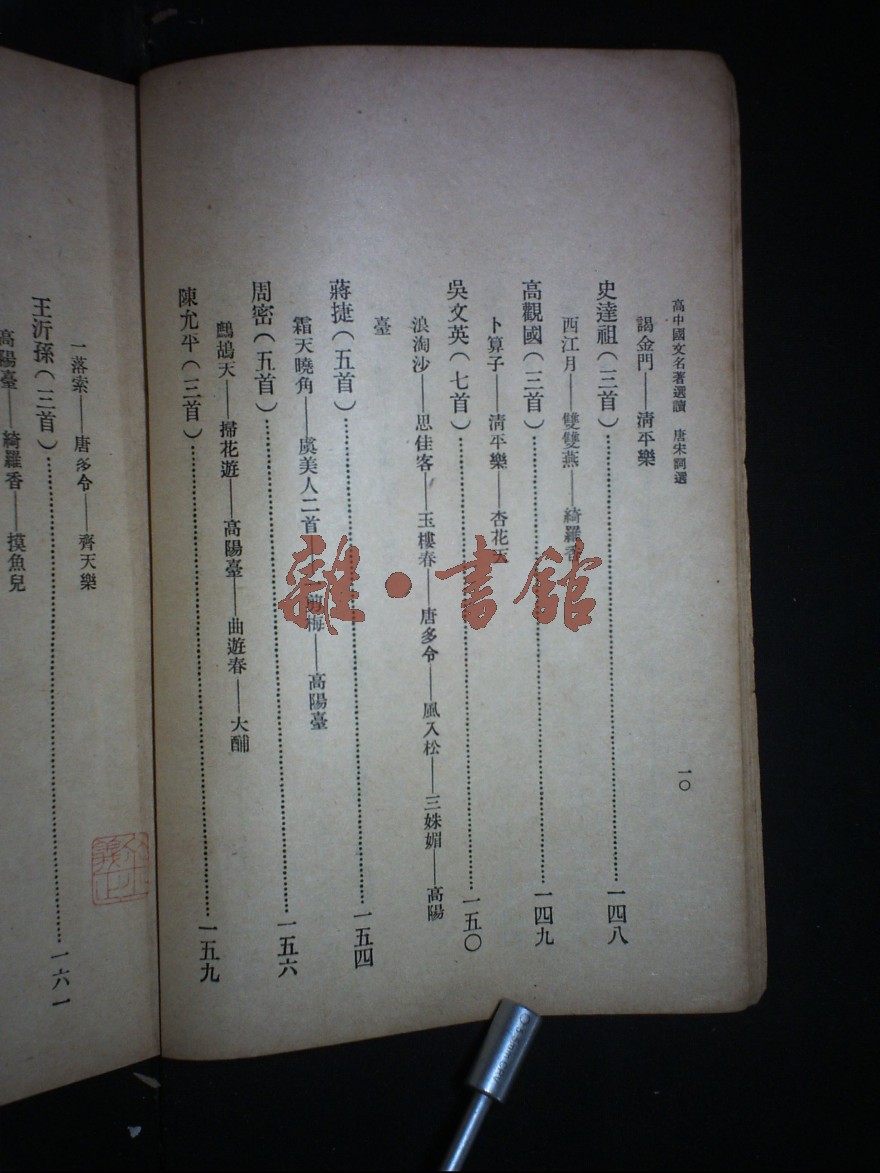 高中國文名著選讀　唐宋詞選
一〇
謁金門——清平樂
史達祖（三首）……一四八
西江月——雙雙燕——綺羅香
高觀國（三首）……一四九
卜算子——清平樂——杏花天
吳文英（七首）……一五〇
浪淘沙——思佳客——玉樓春——唐多令——風入松——三姝媚——高陽
臺
蔣捷（五首）……一五四
霜天曉角——虞美人二首——一剪梅——高陽臺
周密（五首）……一五六
鷓鴣天——掃花遊——高陽臺——曲遊春——大酺
陳允平（三首）……一五九
一落索——唐多令——齊天樂
王沂孫（三首）……一六一
高陽臺——綺羅香——摸魚兒
雜·書館